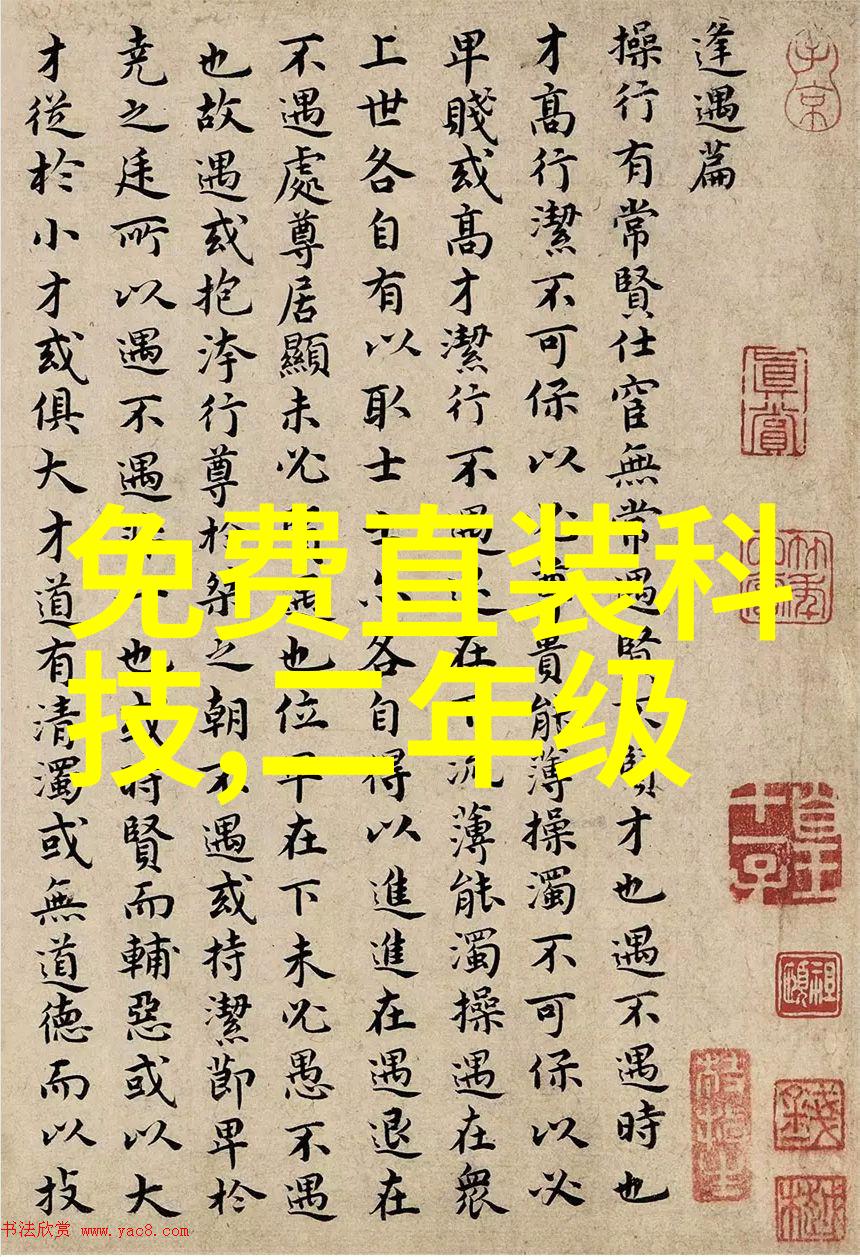 逢遇篇
操行有常賢仕宦無常遇賢不賢才也遇不遇時也
才高行潔不可保以必尊貴能薄操濁不可保以必
卑賤或高才潔行不遇退在下流薄能濁操遇在衆
上世各自有以取士士亦各自得以進進在遇退在
不遇處尊居顯未必賢遇也位卑在下未必愚不遇
也故遇或抱洿行尊於桀之朝不遇或持潔節卑於
堯之廷所以遇不遇非一也或時賢而輔惡或以大
才從於小才或俱大才道有清濁或無道德而以技
免费直装科
技,二年级
子京
真賞
书法欣赏 www.yac8.com